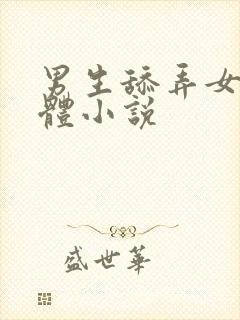 男生舔弄女
體小說
盛世華